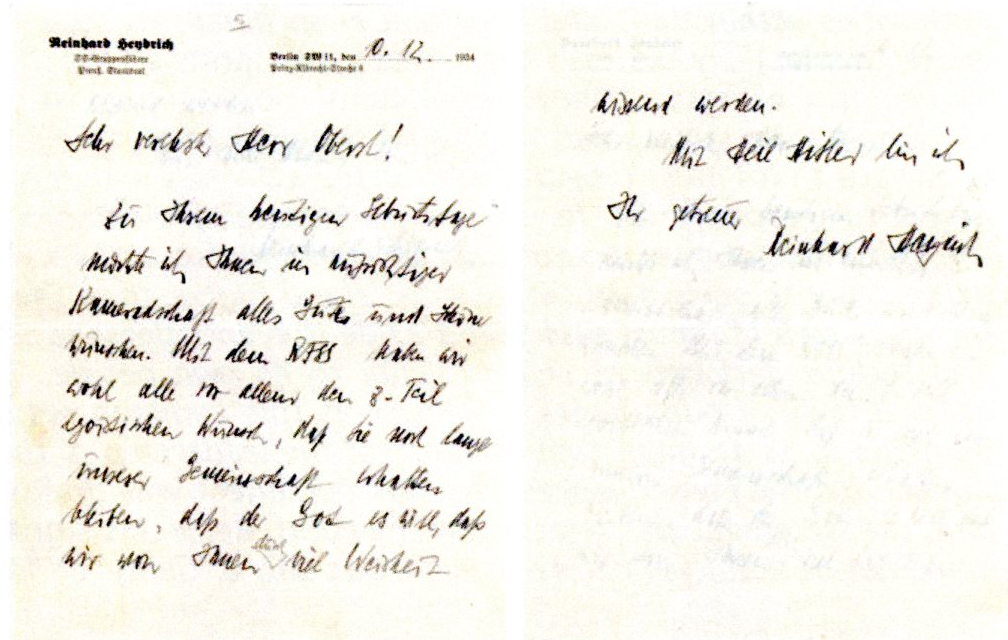 5
Reinhard Heydrich
SS-Gruppenführer
Preuß. Staatsrat
Berlin SW 11, den 10. 12. 1934
Prinz-Albrecht-Straße 8
Sehr verehrter Herr Oberst!
Zu Ihrem heutigen Geburtstage
möchte ich Ihnen in aufrichtiger
Kameradschaft alles Gute und Schöne
wünschen. Mit dem RFSS haben wir
wohl alle vor allem den z. Teil
egoistischen Wunsch, daß Sie noch lange
unserer Gemeinschaft erhalten
bleiben, daß der Gott es will, daß
wir von Ihnen durch viel Weisheit
wissend werden.
Mit Heil Hitler bin ich
Ihr getreuer
Reinhard Heydrich